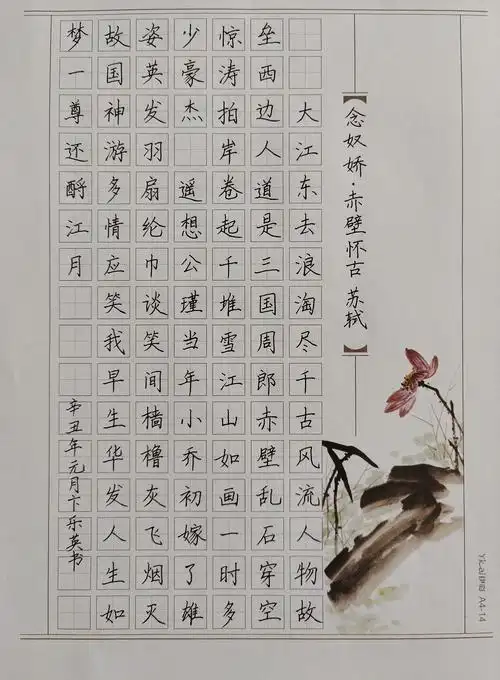 【念奴娇·赤壁怀古 苏轼】
大江东去浪淘尽千古风流人物故
垒西边人道是三国周郎赤壁乱石穿空
惊涛拍岸卷起千堆雪江山如画一时多
少豪杰 遥想公瑾当年小乔初嫁了雄
姿英发羽扇纶巾谈笑间樯橹灰飞烟灭
故国神游多情应笑我早生华发人生如
梦一尊还酹江月
辛丑年元月卞乐英书
A4-14